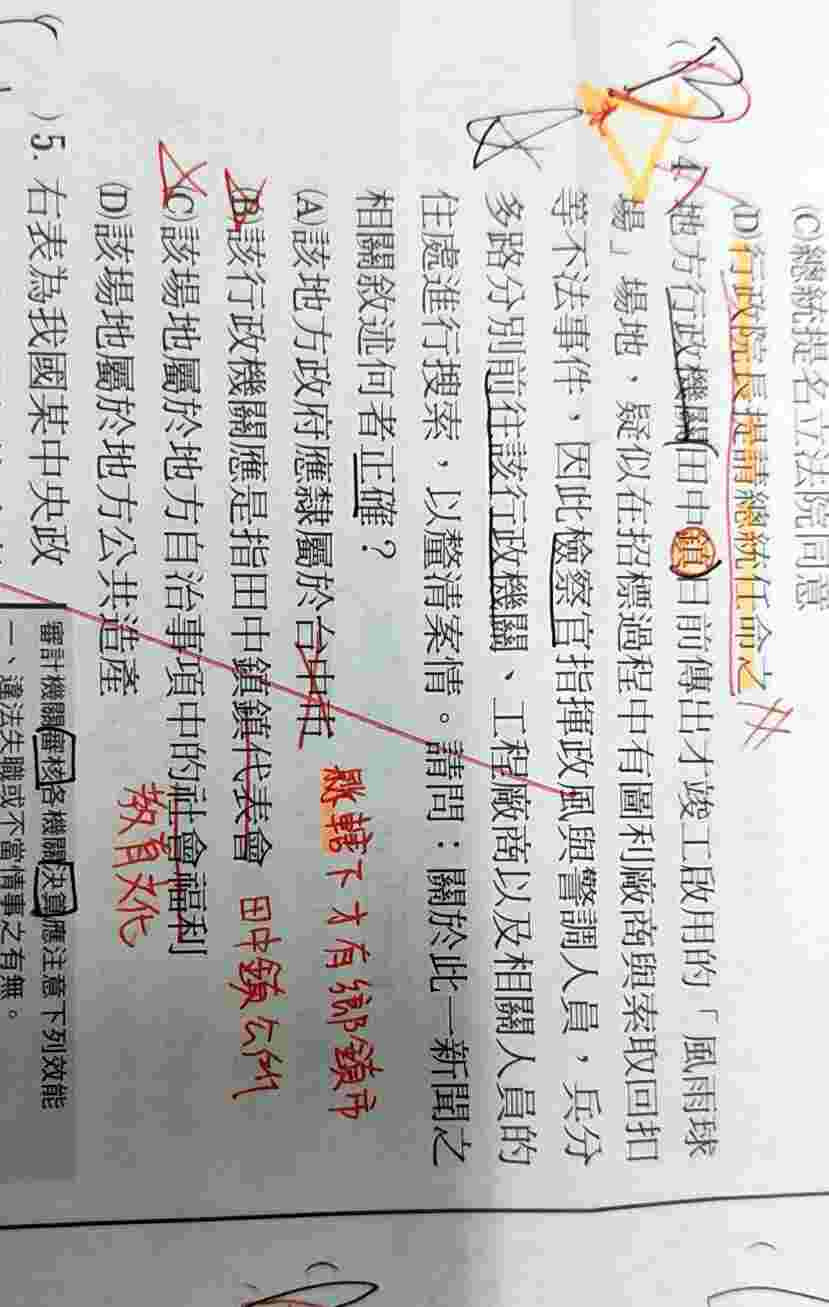 (C)總統提名立法院同意
(D)行政院長提請總統任命之
)4. 地方行政機關田中鎮日前傳出才竣工啟用的「風雨球
場」場地，疑似在招標過程中有圖利廠商與索取回扣
等不法事件，因此檢察官指揮政風與警調人員，兵分
多路分別前往該行政機關、工程廠商以及相關人員的
住處進行搜索，以釐清案情。請問：關於此一新聞之
相關敘述何者正確？
(A)該地方政府應隸屬於台中市
縣轄下才有鄉鎮市
(B)該行政機關應是指田中鎮鎮代表會
田中鎮公所
(C)該場地屬於地方自治事項中的社會福利
教育文化
(D)該場地屬於地方公共造產
)5. 右表為我國某中央政
審計機關審核各機關決算應注意下列效能
一、違法失職或不當情事之有無。